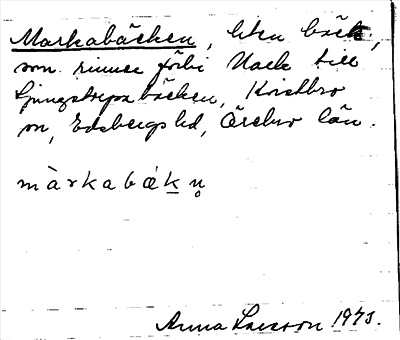 Markabäcken, liten bäck,
som rinner förbi Nack till
Ljungstorpabäcken, Kvistbro
sn, Edsbergs hd, Örebro län.
màrkabák̲n̥
Anna Larsson 1973.